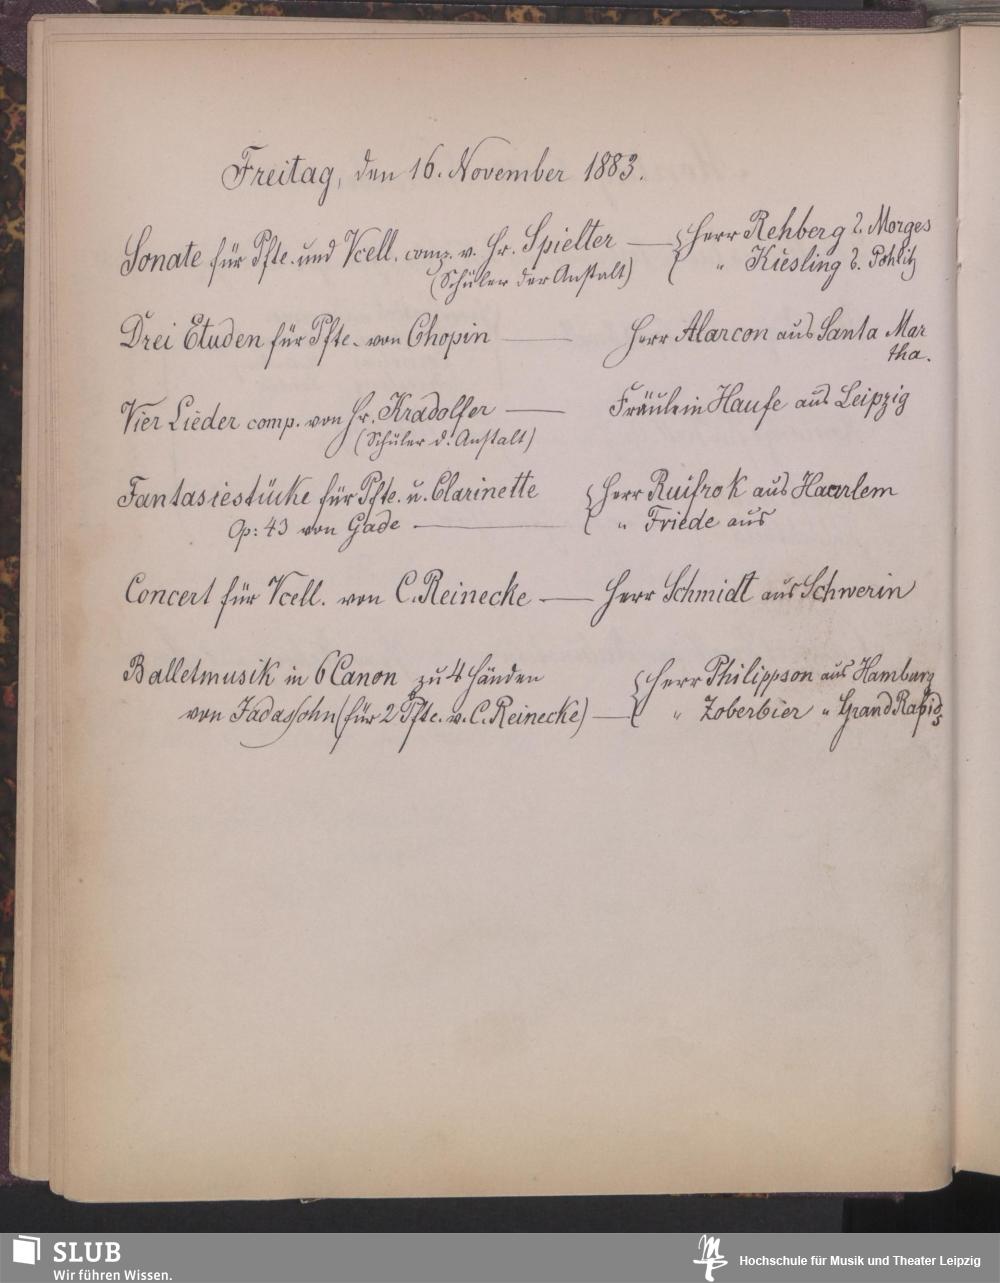 Freitag, den 16. November 1883.
Sonate für Pfte. und Vcell. comp. v. Hr. Spielter — Herr Rehberg a. Morges
(Schüler der Anstalt) " Kiesling a. Pohlitz
Drei Etuden für Pfte. von Chopin — Herr Alarcon aus Santa Mar
tha.
Vier Lieder comp. von Hr. Kradolfer — Fräulein Haufe aus Leipzig
(Schüler d. Anstalt)
Fantasiestücke für Pfte. u. Clarinette Herr Ruifrok aus Haarlem
Op: 43 von Gade — " Friede aus
Concert für Vcell. von C. Reinecke — Herr Schmidt aus Schwerin
Balletmusik in 6 Canon zu 4 Händen Herr Philippson aus Hamburg
von Jadassohn (für 2 Pfte. v. C. Reinecke) — " Zoberbier " Grand Rapids
SLUB
Wir führen Wissen.
Hochschule für Musik und Theater Leipzig